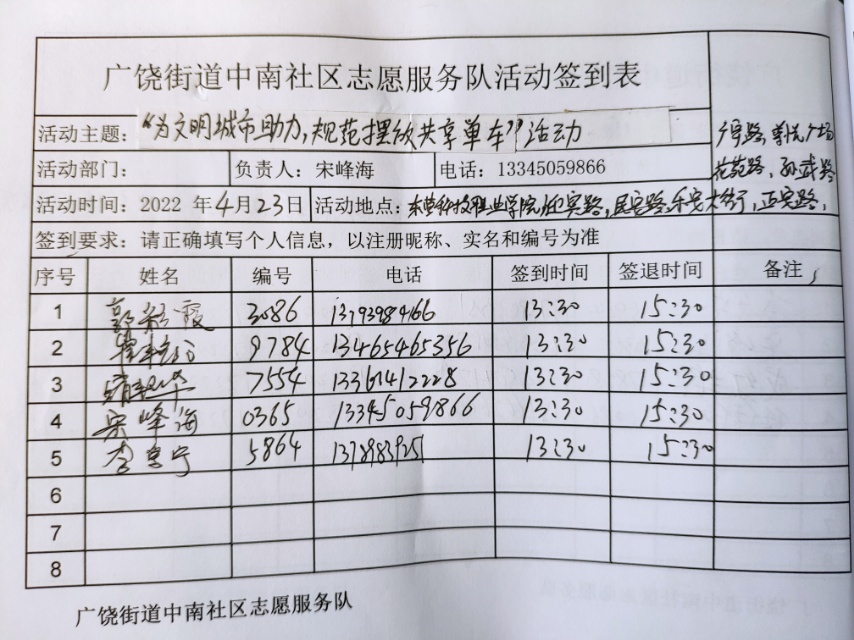 广饶街道中南社区志愿服务队活动签到表
活动主题:“为文明城市助力,规范摆放共享单车”活动
活动部门: 负责人:宋峰海 电话:13345059866
花苑路、孙武路
活动时间:2022 年4月23日 活动地点:东营科技职业学院,迎宾路,民安路,乐安大街,正安路,
签到要求:请正确填写个人信息,以注册昵称、实名和编号为准
序号 姓名 编号 电话 签到时间 签退时间 备注
1 霞 3086 13793984166 13:30 15:30
2 9784 13465465356 13:30 15:30
3 7554 13361412228 13:30 15:30
4 宋峰海 0365 13345059866 13:30 15:30
5 李宁 5864 13:30 15:30
6
7
8
广饶街道中南社区志愿服务队